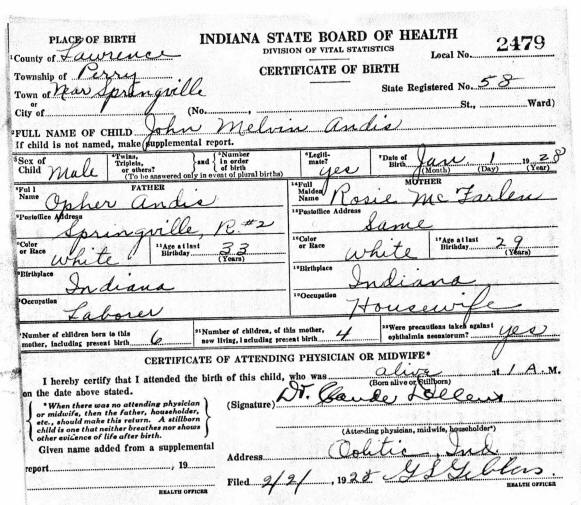 PLACE OF BIRTH
INDIANA STATE BOARD OF HEALTH
DIVISION OF VITAL STATISTICS
Local No. 2479
CERTIFICATE OF BIRTH
1County of Lawrence
Township of Perry
Town of Near Springville
or
City of
State Registered No. 58
(No. St., Ward)
2FULL NAME OF CHILD John Melvin Andis
If child is not named, make supplemental report.
3Sex of Child Male
4Twins, Triplets, or others? and 5Number in order of birth
(To be answered only in event of plural births)
6Legitimate? yes
7Date of Birth Jan 1 1928
(Month) (Day) (Year)
FATHER
8Full Name Opher Andis
9Postoffice Address
Springville, R. #2
10Color or Race White
11Age at last Birthday 33
(Years)
12Birthplace
Indiana
13Occupation
Laborer
MOTHER
14Full Maiden Name Rosie Mc Farlen
15Postoffice Address
Same
16Color or Race White
17Age at last Birthday 29
(Years)
18Birthplace
Indiana
19Occupation
Housewife
20Number of children born to this mother, including present birth 6
21Number of children, of this mother, now living, including present birth 4
22Were precautions taken against ophthalmia neonatorum? yes
CERTIFICATE OF ATTENDING PHYSICIAN OR MIDWIFE*
I hereby certify that I attended the birth of this child, who was alive at 1 A. M.
(Born alive or Stillborn)
on the date above stated.
*When there was no attending physician
or midwife, then the father, householder,
etc., should make this return. A stillborn
child is one that neither breathes nor shows
other evidence of life after birth.
(Signature) Dr. Claude
(Attending physician, midwife, householder*)
Given name added from a supplemental
report , 19
HEALTH OFFICER
Address Oolitic, Ind
Filed 2/2/, 1928
HEALTH OFFICER